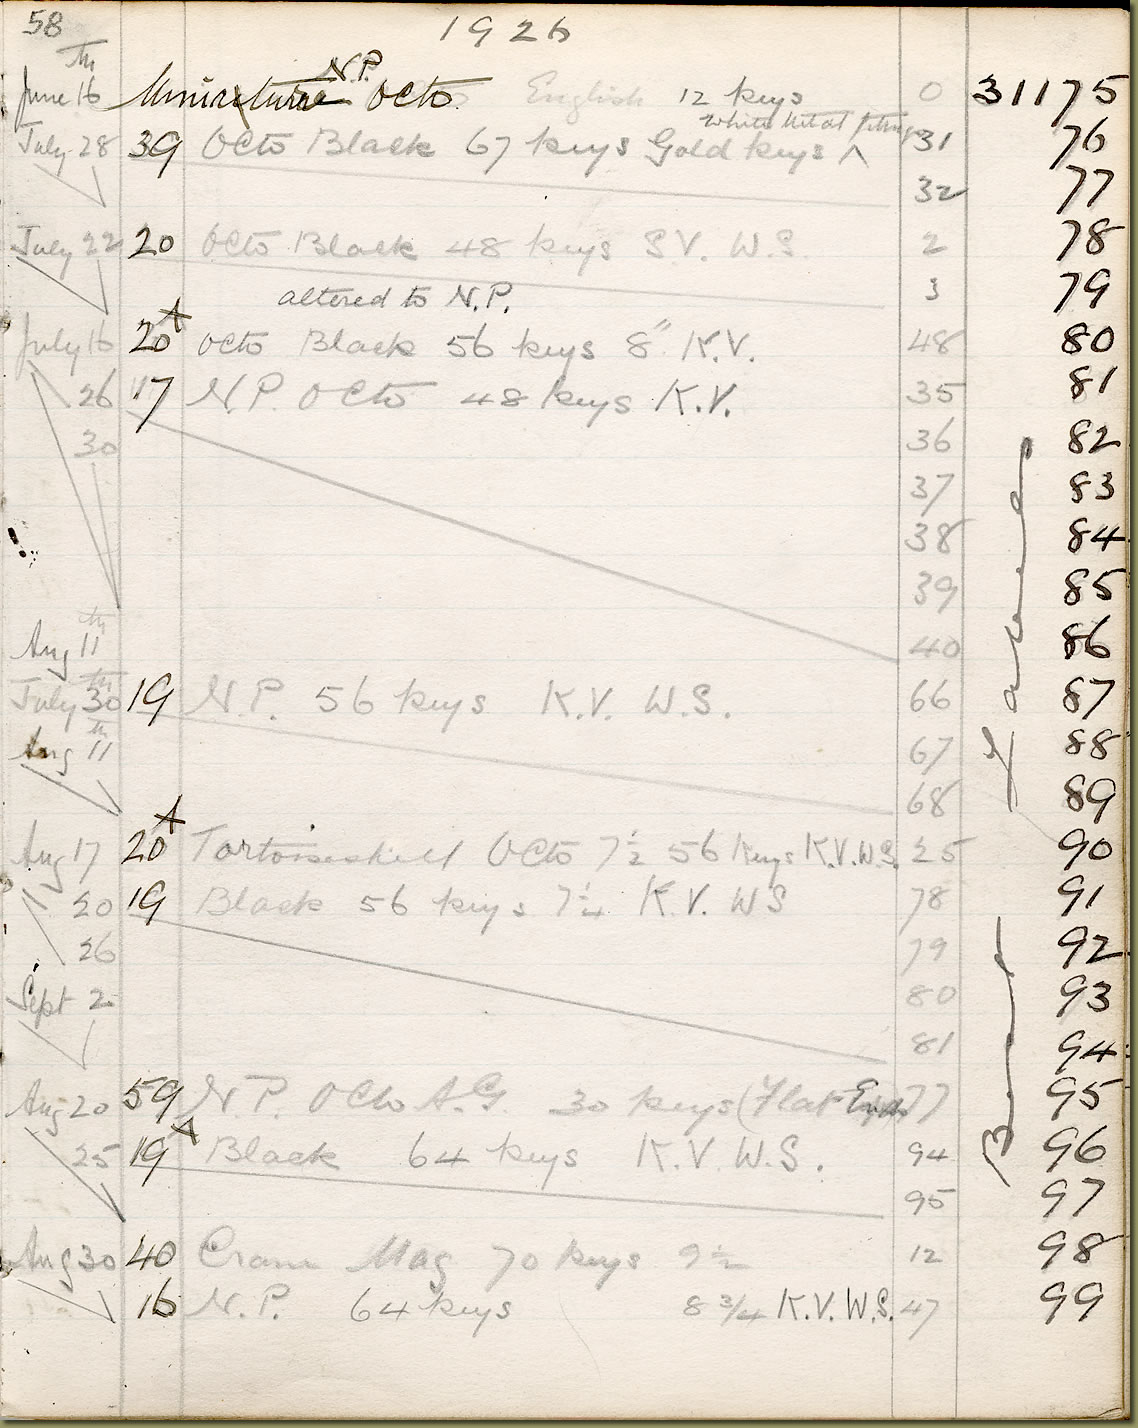 58
1926
th N.P.
June 16 Miniature Octo English 12 keys 0 31175
White Metal fittings
July 28 39 Octo Black 67 keys Gold keys ^ 31 76
32 77
July 22 20 Octo Black 48 keys S.V. W.S. 2 78
altered to N.P. 3 79
July 16 20A Octo Black 56 keys 8" K.V. 48 80
26 17 N.P. Octo 48 keys K.V. 35 81
30 36 82
37 83
38 84
39 85
Aug 11th 40 86
July 30th 19 N.P. 56 keys K.V. W.S. 66 87
Aug 11th 67 88
68 89
Aug 17 20A Tortoiseshell Octo 7½ 56 Keys K.V.W.S. 25 90
20 19 Black 56 keys 7¼ K.V. WS 78 91
26 79 92
Sept 2 80 93
81 94
Aug 20 59 N.P. Octo A.G. 30 keys (Flat Ends 77 95
25 19A Black 64 keys K.V. W.S. 94 96
95 97
Aug 30 40 Crane Mag 70 keys 9½ 12 98
16 N.P. 64 keys 8 3/4 K.V. W.S. 47 99